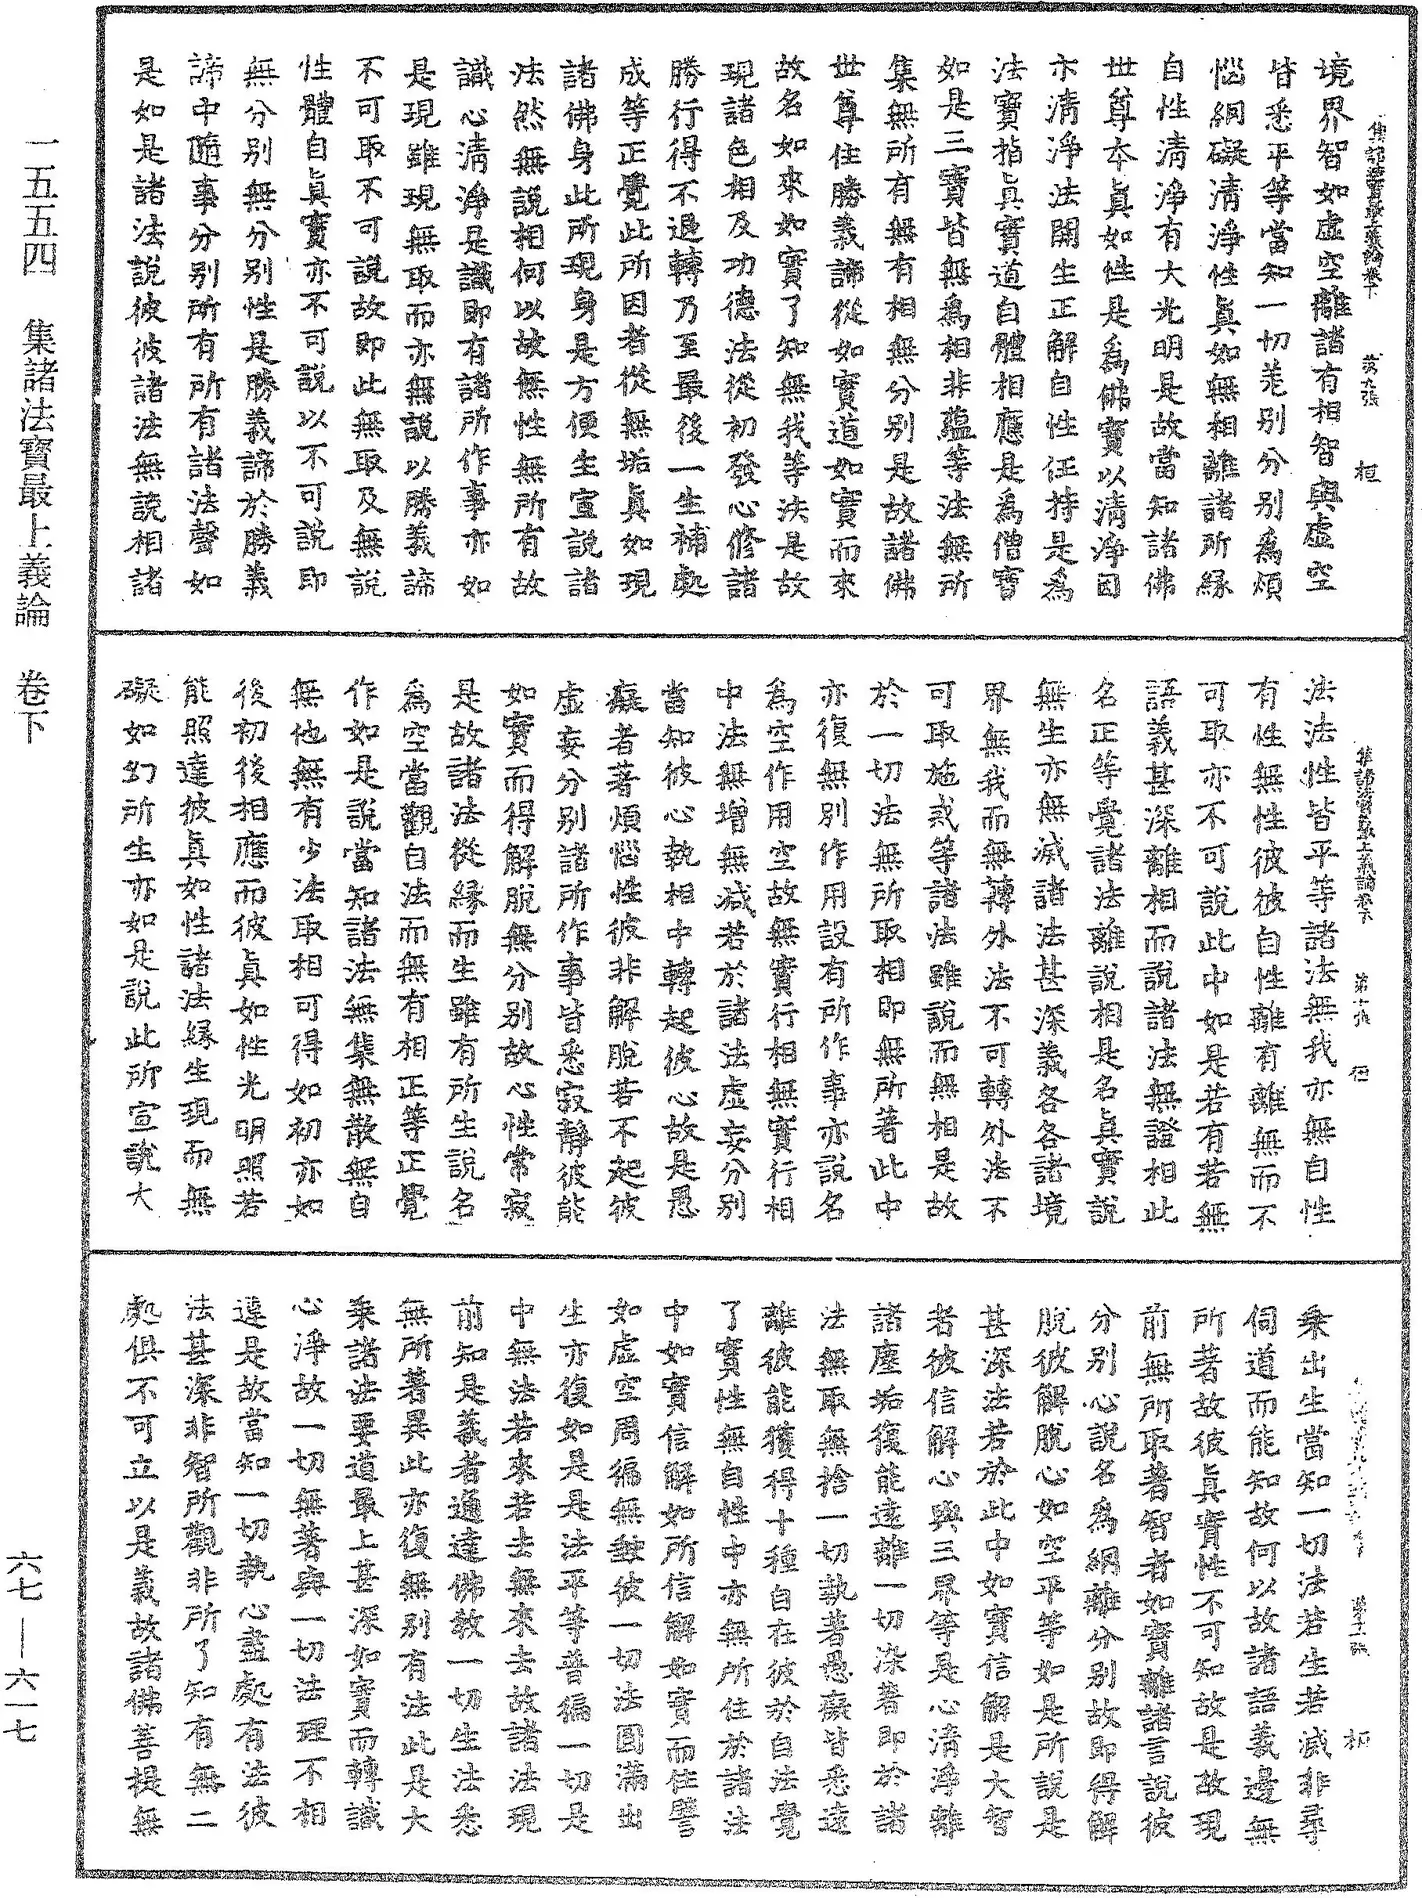 集諸法寶最上義論卷下　第九張　桓
境界智如虛空離諸有相智與虛空
皆悉平等當知一切差別分別為煩
惱網礙清淨性真如無相離諸所緣
自性清淨有大光明是故當知諸佛
世尊本真如性是為佛寶以清淨因
亦清淨法開生正解自性任持是為
法寶指真實道自體相應是為僧寶
如是三寶皆無為相非蘊等法無所
集無所有無有相無分別是故諸佛
世尊住勝義諦從如實道如實而來
故名如來如實了知無我等法是故
現諸色相及功德法從初發心修諸
勝行得不退轉乃至最後一生補處
成等正覺此所因者從無垢真如現
諸佛身此所現身是方便生宣說諸
法然無說相何以故無性無所有故
識心清淨是識即有諸所作事亦如
是現雖現無取而亦無說以勝義諦
不可取不可說故即此無取及無說
性體自真實亦不可說以不可說即
無分別無分別性是勝義諦於勝義
諦中隨事分別所有所有諸法聲如
是如是諸法說彼彼諸法無說相諸
集諸法寶最上義論卷下　第十張　桓
法法性皆平等諸法無我亦無自性
有性無性彼彼自性離有離無而不
可取亦不可說此中如是若有若無
語義甚深離相而說諸法無證相此
名正等覺諸法離說相是名真實說
無生亦無滅諸法甚深義各各諸境
界無我而無轉外法不可轉外法不
可取施戒等諸法雖說而無相是故
於一切法無所取相即無所著此中
亦復無別作用設有所作事亦說名
為空作用空故無實行相無實行相
中法無增無減若於諸法虛妄分別
當知彼心執相中轉起彼心故是愚
癡者著煩惱性彼非解脫若不起彼
虛妄分別諸所作事皆悉寂靜彼能
如實而得解脫無分別故心性常寂
是故諸法從緣而生雖有所生說名
為空當觀自法而無有相正等正覺
作如是說當知諸法無集無散無自
無他無有少法取相可得如初亦如
後初後相應而彼真如性光明照若
能照達彼真如性諸法緣生現而無
礙如幻所生亦如是說此所宣說大
第十一張　桓
乘出生當知一切法若生若滅非尋
伺道而能知故何以故諸語義邊無
所著故彼真實性不可知故是故現
前無所取著智者如實離諸言說彼
分別心說名為網離分別故即得解
脫彼解脫心如空平等如是所說是
甚深法若於此中如實信解是大智
者彼信解心與三界等是心清淨離
諸塵垢復能遠離一切染著即於諸
法無取無捨一切執著愚癡皆悉遠
離彼能獲得十種自在彼於自法覺
了實性無自性中亦無所住於諸法
中如實信解如所信解如實而住譬
如虛空周徧無數彼一切法圓滿出
生亦復如是是法平等普徧一切是
中無法若來若去無來去故諸法現
前知是義者通達佛教一切生法悉
無所著異此亦復無別有法此是大
乘諸法要道最上甚深如實而轉識
心淨故一切無著與一切法理不相
違是故當知一切執心盡處有法彼
法甚深非智所觀非所了知有無二
處俱不可立以是義故諸佛菩提無
一五五四　集諸法寶最上義論　卷下
六七—六一七